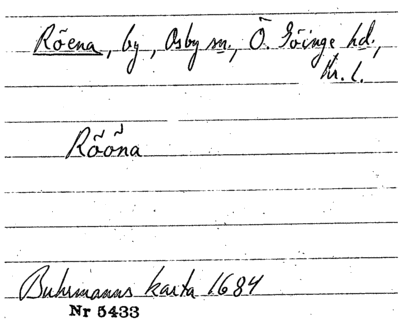 Röena, by, Osby sn., Ö. Göinge hd.,
Kr. l.
Rööna
Buhrmanns karta 1684
Nr 5433